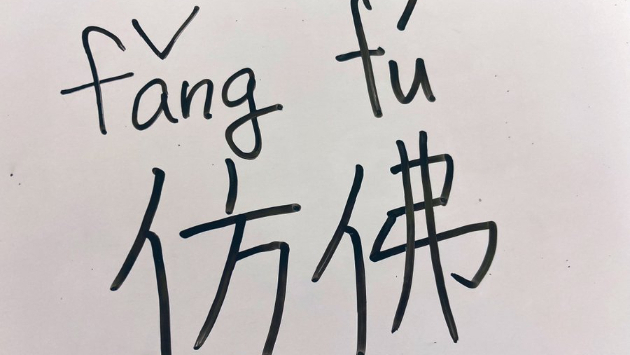 fǎng fú
仿佛